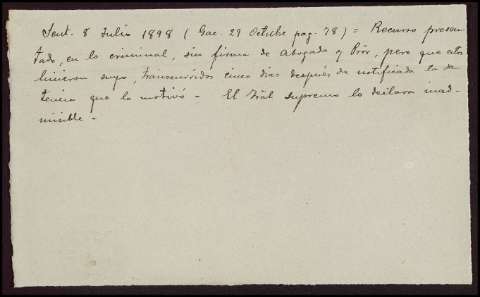 Sent. 8 Julio 1898 (Gac. 29 Octubre pag. 78) = Recurso presen-
tado, en lo criminal, sin firma de Abogado y Pror, pero que
hicieron suyo, transcurridos cinco dias después de notificada la sen-
tencia que lo motivó - El Trâl supremo lo declara inad-
misible -